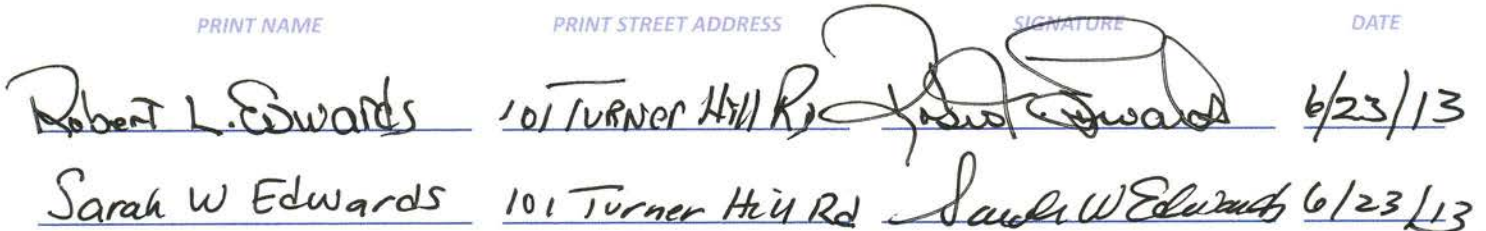 PRINT NAME PRINT STREET ADDRESS SIGNATURE DATE
Robert L. Edwards 101 Turner Hill Rd Robert Edwards 6/23/13
Sarah W Edwards 101 Turner Hill Rd Sarah W Edwards 6/23/13